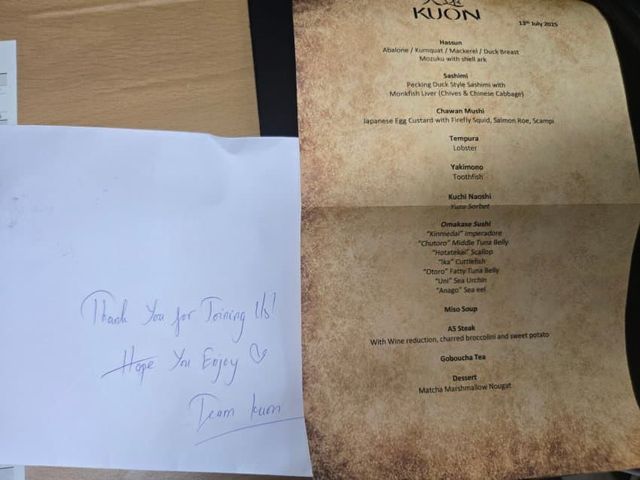 Thank You for Joining Us!
Hope You Enjoy ♡
Team kuon
KUON
13th July 2025
Hassun
Abalone / Kumquat / Mackerel / Duck Breast
Mozuku with shell ark
Sashimi
Pecking Duck Style Sashimi with
Monkfish Liver (Chives & Chinese Cabbage)
Chawan Mushi
Japanese Egg Custard with Firefly Squid, Salmon Roe, Scampi
Tempura
Lobster
Yakimono
Toothfish
Kuchi Naoshi
Yuzu Sorbet
Omakase Sushi
"Kinmedai" Imperadore
"Chutoro" Middle Tuna Belly
"Hotatekai" Scallop
"Ika" Cuttlefish
"Otoro" Fatty Tuna Belly
"Uni" Sea Urchin
"Anago" Sea eel
Miso Soup
A5 Steak
With Wine reduction, charred broccolini and sweet potato
Goboucha Tea
Dessert
Matcha Marshmallow Nougat